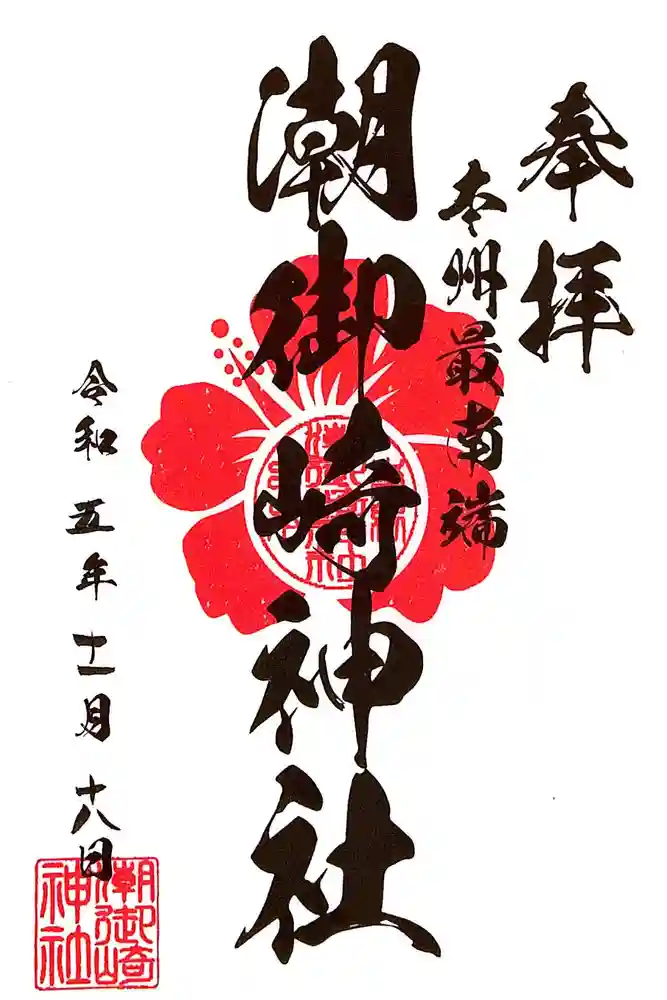 奉拝
本州最南端
潮御崎神社
令和五年十一月十八日
潮御崎
神社